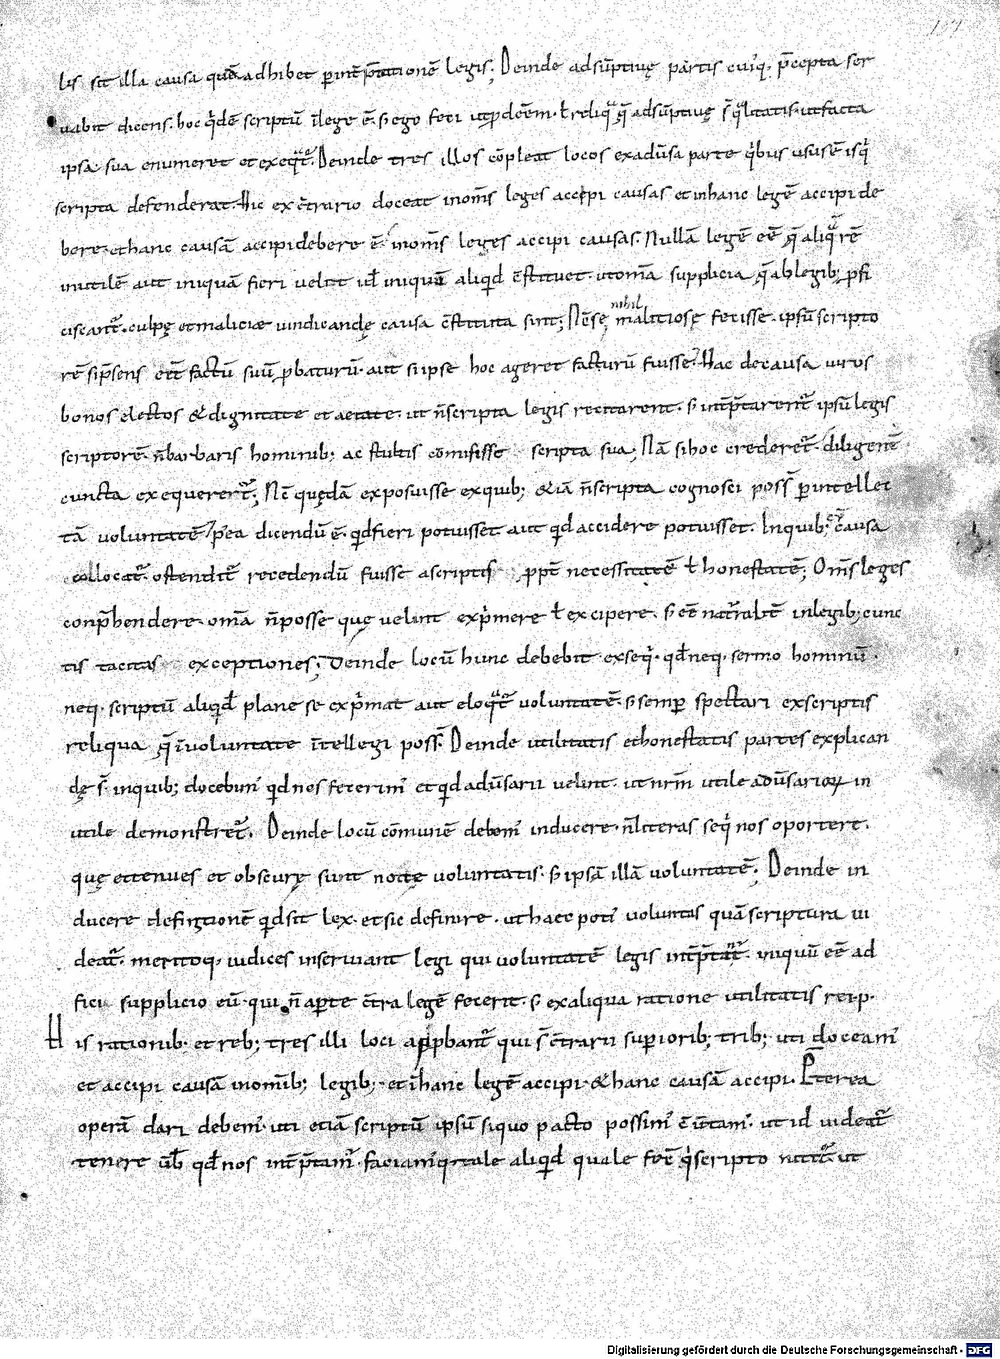 lis sit illa causa quẽ adhibet p int̃p̃tationẽ legis; Deinde adsũptiuę partis cuiq. p̃cepta ser
uabit dicens. hoc q̃dẽ scriptũ ĩlege ẽ. s; ego feci ut p deẽm. ł reliq̃ q̃ adsũptiuę s̃ q̃litatis. ut facta
ipsa sua enumeret et exeq̃t̃. Deinde tres illos cõpleat locos ex adũsa parte q̃bus usus ẽ is q̃
scripta defenderat. Hic ex c̃trario doceat in om̃s leges accipi causas et in hanc legẽ accipi de
bere. et hanc causã accipi debere ẽ. in om̃s leges accipi causas. Nullã legẽ eẽ, q̃ aliq̃ rẽ
inutilẽ aut iniquã fieri uelit uł iniquũ aliqid c̃stituet. ut om̃a supplicia q̃ ab legib; p̃fi
ciscant̃. culpę et maliciae uindicandę causa c̃stituta sint; Nẽ se nihil malitiosę fecisse. ipsũ scripto
rẽ si p̃sens eẽt factũ suũ p̱baturũ. aut si ipse hoc ageret facturũ fuisse. Hac de causa uiros
bonos electos & dignitate et aetate. ut ñ scripta legis recitarent. s; int̃p̃tarent̃ ipsũ legis
scriptorẽ. ñ barbaris hominib; ac stultis cõmisisse scripta sua; Nã si hoc crederet̃. diligent̃
cuncta exequeret̃; Nẽ quędã exposuisse ex quib; & iã ñ scripta cognosci poss̃ p intellec
tã uoluntatẽ p̃ea dicendũ ẽ. qd fieri potuisset aut qd accidere potuisset. In quib; causa
collocat̃. ostendit̃ recedendũ fuisse a scriptis ppt̃ necessitatẽ ł honestatẽ; Om̃s leges
conp̃hendere. om̃a ñ posse quę uelint exp̃mere ł excipere. s; eẽ nat̃alit̃ in legib; cunc
tis tacitas exceptiones; Deinde locũ hunc debebit exseq̃. qd neq. sermo hominũ.
neq. scriptũ aliqid plane se exp̃mat aut eloq̃t̃ uoluntatẽ. s; semp̱ spectari ex scriptis
reliqua q̃ ĩ uoluntate ĩtellegi poss̃. Deinde utilitatis et honestatis partes explican
dę s̃. in quib; docebim̾ qd nos fecerim̾ et qd adũsarii uelint. ut nr̃m utile adũsarioꝝ in
utile demonstret̃. Deinde locũ cõmunẽ debem̾ inducere. ñ literas seq̃ nos oportere.
quę et tenues et obscurę sunt notę uoluntatis. s; ipsã illã uoluntatẽ. Deinde in
ducere definitionẽ qd sit lex. et sic definire. ut haec poti̾ uoluntas quã scriptura ui
deat̃. meritoq. iudices inseruiant legi qui uoluntatẽ legis int̃p̃tant̃. iniquũ eẽ ad
fici supplicio eũ. qui ñ apte c̃tra legẽ fecerit. s; ex aliqua ratione utilitatis rei p.
His rationib. et reb; tres illi loci app̱bant̃ qui s̃ c̃trarii superiorib; trib; uti doceam̾
et accipi causã in om̃ib; legib; et ĩ hanc legẽ accipi & hanc causã accipi. P̃terea
operã dari debem̾. uti etiã scriptũ ipsũ si quo pacto possim̾ c̃ũtam̾. ut id uideat̃
tenere ũb̃ qd nos int̃p̃tam̾. faciam̾q. tale aliqid quale foẽ q̃ scripto nitit̃. ut
Digitalisierung gefördert durch die Deutsche Forschungsgemeinschaft - DFG